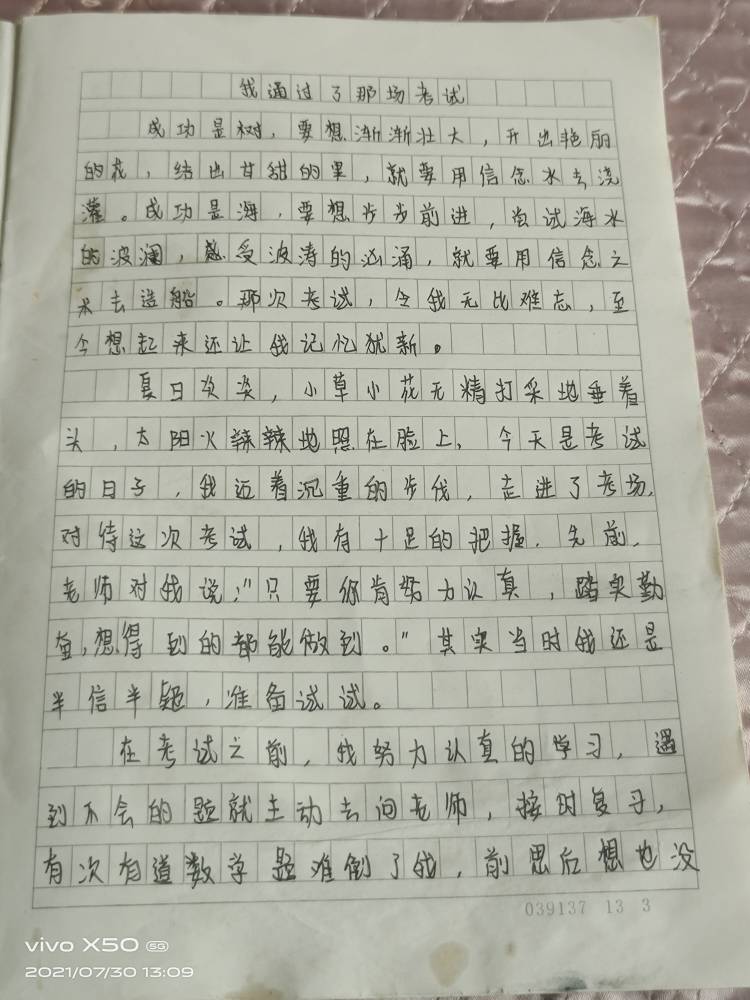 我通过了那场考试
成功是树，要想渐渐壮大，开出艳丽
的花，结出甘甜的果，就要用信念水去浇
灌。成功是海，要想步步前进，尝试海水
的波澜，感受波涛的汹涌，就要用信念之
木去造船。那次考试，令我无比难忘，至
今想起来还让我记忆犹新。
夏日炎炎，小草小花无精打采地垂着
头，太阳火辣辣地照在脸上，今天是考试
的日子，我迈着沉重的步伐，走进了考场，
对待这次考试，我有十足的把握．先前，
老师对我说；"只要你肯努力认真，踏实勤
奋，想得到的都能做到。"其实当时我还是
半信半疑，准备试试。
在考试之前，我努力认真的学习，遇
到不会的题就主动去问老师，按时复习，
有次有道数学题难倒了我，前思后想也没
039137 13 3
vivo X50 5G
2021/07/30 13:09